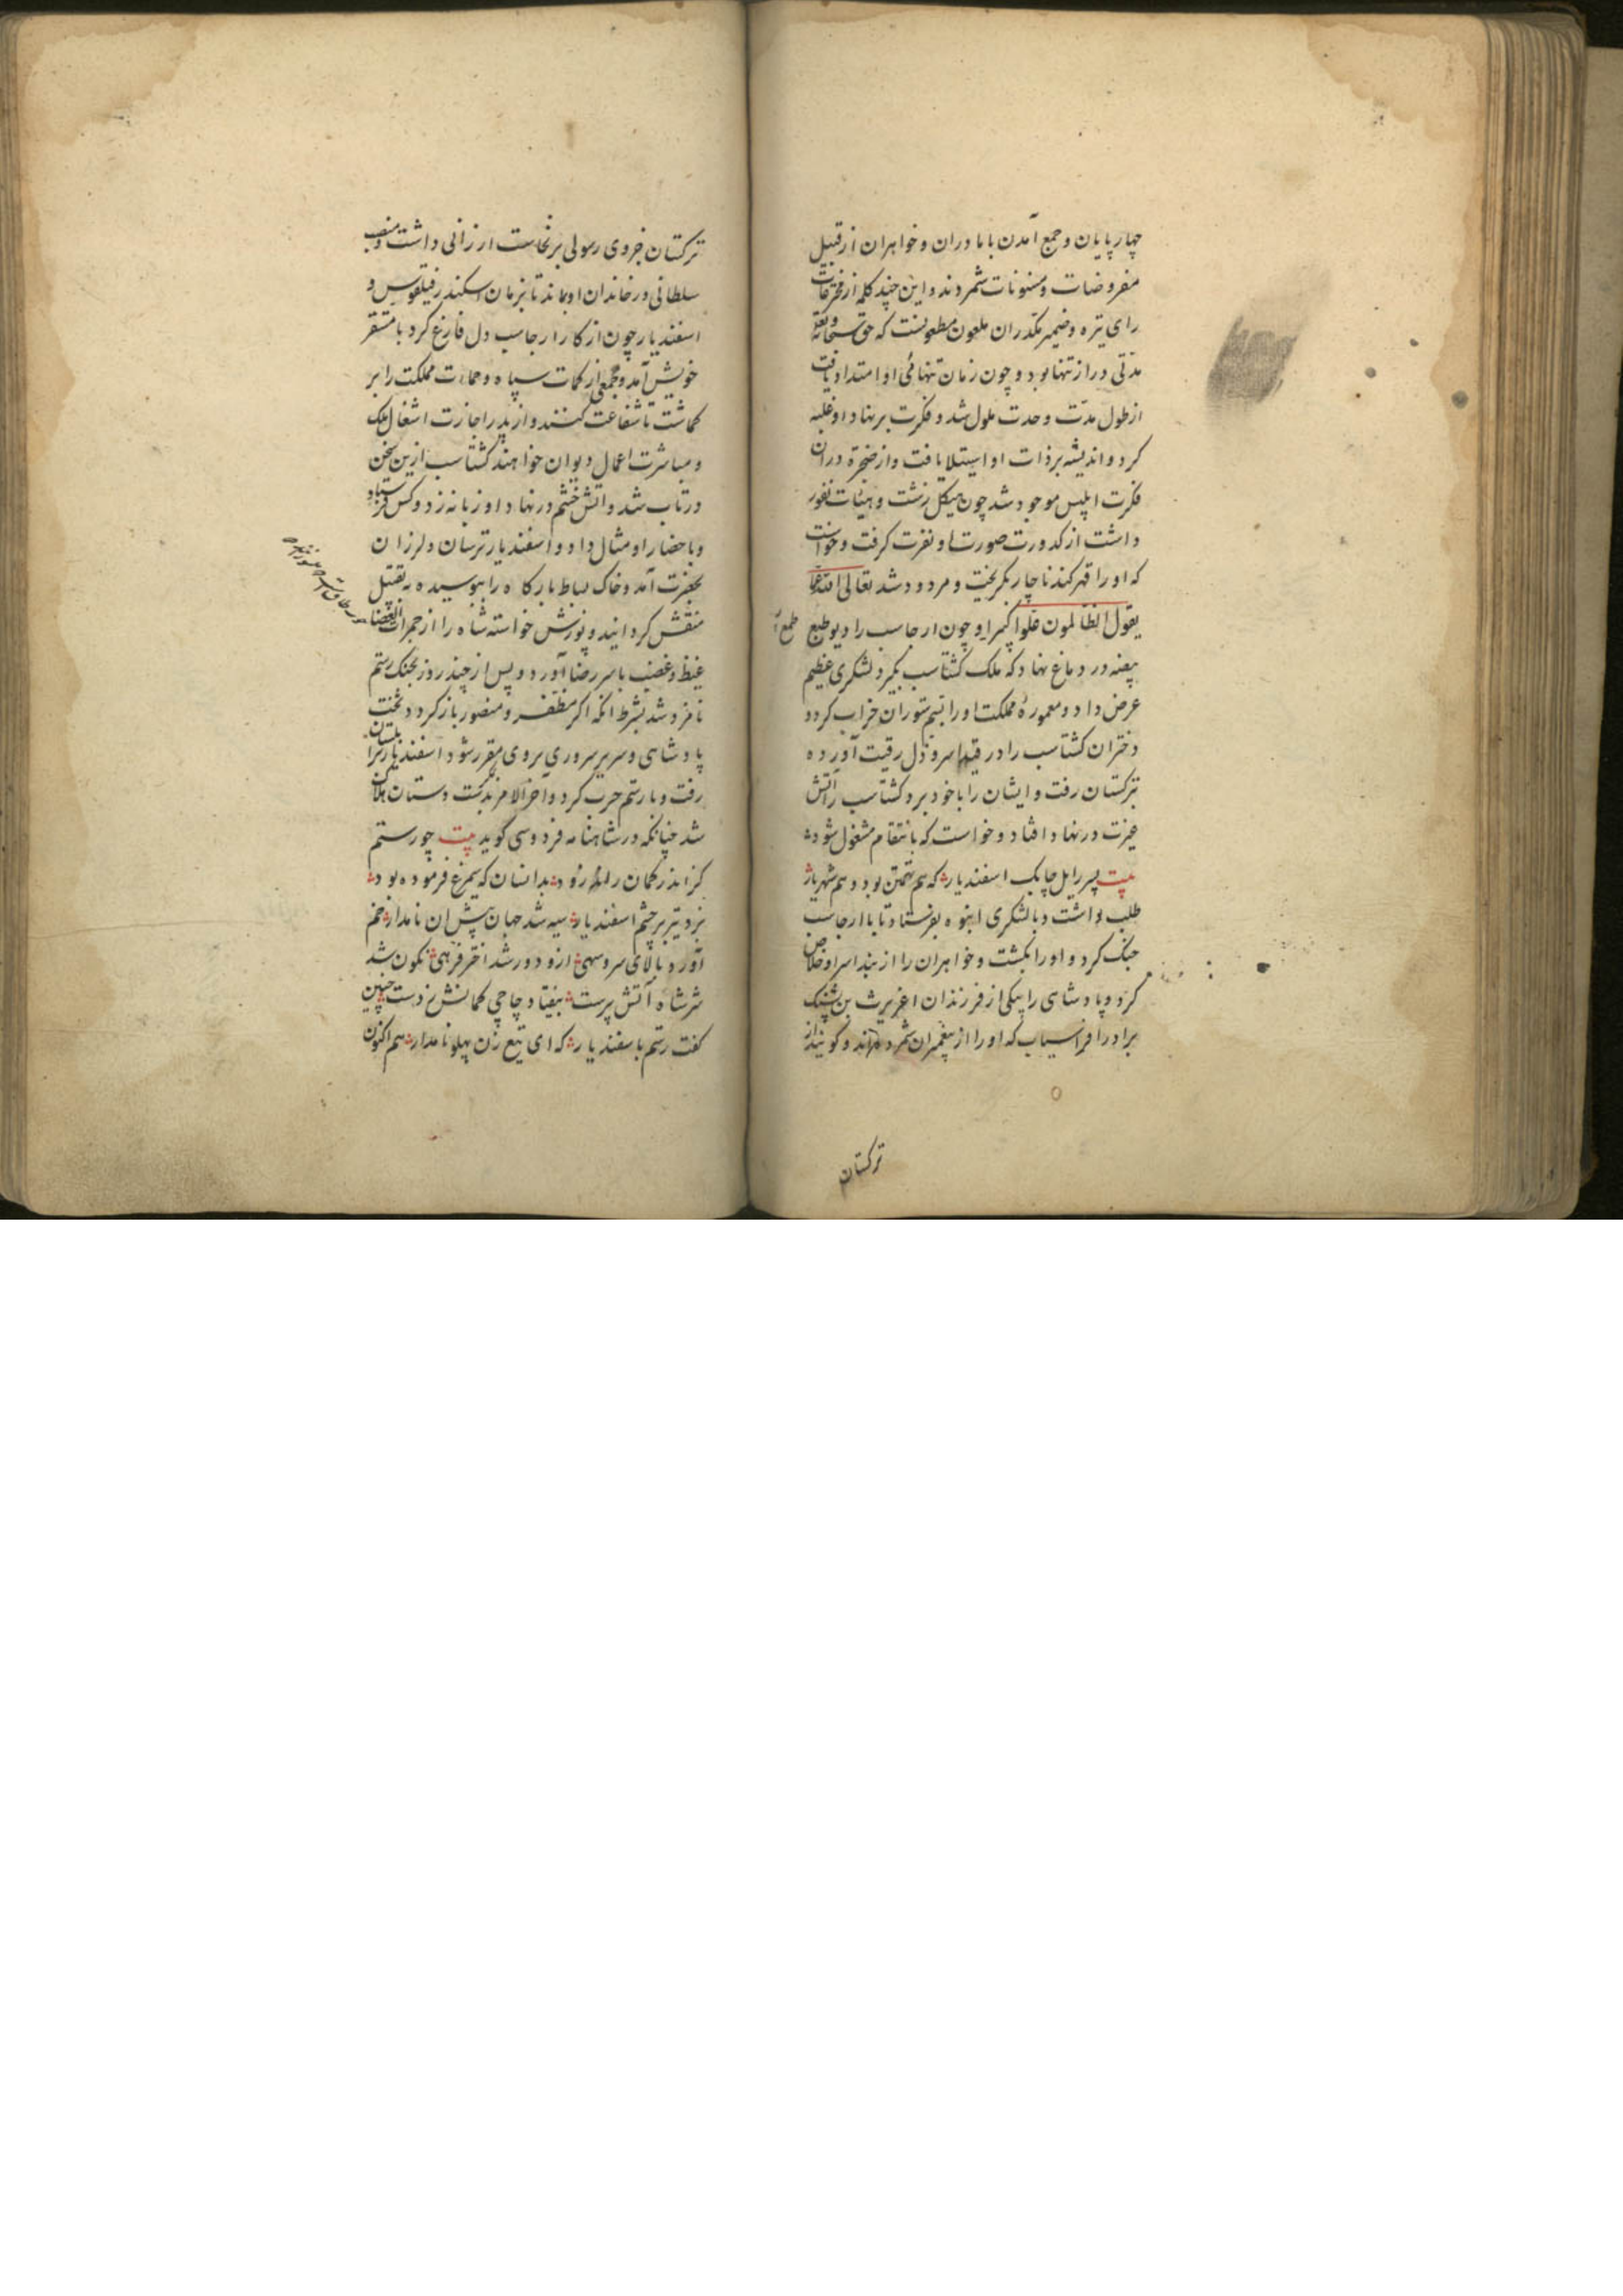 چهارپایان و جمع آمدن با مادران و خواهران از قبیل
مفروضات و مسنونات شمردند و این چند کلمه از مخترعات
رای تیره و ضمیر مکدر ان ملعون مطعونست که حق سبحانه و تع
مدتی دراز تنها بود و چون زمان تنهائی او امتداد یافت
از طول مدت وحدت ملول شد و فکرت بر نهاد او غلبه
کرد و اندیشه بر ذات او استیلا یافت و از ضجرة دران
فکرت ابلیس موجود شد چون هیکل زشت و هیئات نفور
داشت از کدورت صورت او نفرت گرفت و خواست
که او را قهر کند ناچار بگریخت و مردود شد تعالی الله عما
یقول الظالمون علوا کبیرا و چون ارجاسب را دیو طبع طمع
بیضه در دماغ نهاد که ملک کشتاسب بگیرد لشکری عظیم
عرض داد و معموره مملکت او را بسم ستوران خراب کرد و
دختران کشتاسب را در قید اسر و ذل رقیت آورده
بترکستان رفت و ایشان را با خود برد کشتاسب را آتش
غیرت در نهاد افتاد و خواست که بانتقام مشغول شود
بیت پسر را یل چابک اسفندیار که هم تهمتن بود و هم شهریار
طلب داشت و با لشکری انبوه بفرستاد تا با ارجاسب
جنگ کرد و او را بکشت و خواهران را از بند اسر او خلاص
کرد و پادشاهی را بیکی از فرزندان اغریرث بن پشنک
برادر افراسیاب که او را از پیغمبران شمرده اند و کویند از
ترکستان
ترکستان جز وی رسولی برنخاست ارزانی داشت و منصب
سلطانی در خاندان او بماند تا بزمان اسکندر فیلقوس و
اسفندیار چون از کار ارجاسب دل فارغ کرد با مستقر
خویش آمد و جمعی از کمات سپاه و حمات مملکت را بر
کماشت تا شفاعت کنند و از پدر اجازت اشغال ملک
و مباشرت اعمال دیوان خواهند کشتاسب ازین سخن
در تاب شد و آتش خشم در نهاد او زبانه زد و کس فرستاد
و باحضار او مثال داد و اسفندیار ترسان و لرزان
بحضرت آمد و خاک بساط بارکاه را ببوسیده به تقبیل
منقش کردانید و پوزش خواسته شاه را از جمرات الغضا
غیظ و غضب با سر رضا آورد و پس از چند روز بجنک رستم
نامزد شد بشرط آنکه اکر مظفر و منصور باز کردد تخت
پادشاهی و سریر سروری بروی مقرر شود اسفندیار بزابلستان
رفت و با رستم حرب کرد و آخر الامر بدست دستان هلاک
شد چنانکه در شاهنامه فردوسی کوید بیت چو رستم
کز اندر کمان راند زود بدانسان که سیمرغ فرموده بود
بزد تیر بر چشم اسفندیار سیه شد جهان پیش ان نامدار خم
آورد بالای سرو سهی ازو دور شد اختر فرهی نکون شد
سر شاه آتش پرست بیفتاد چاچی کمانش ز دست چنین
کفت رستم باسفندیار که ای تیغ زن پهلو نامدار هم اکنون